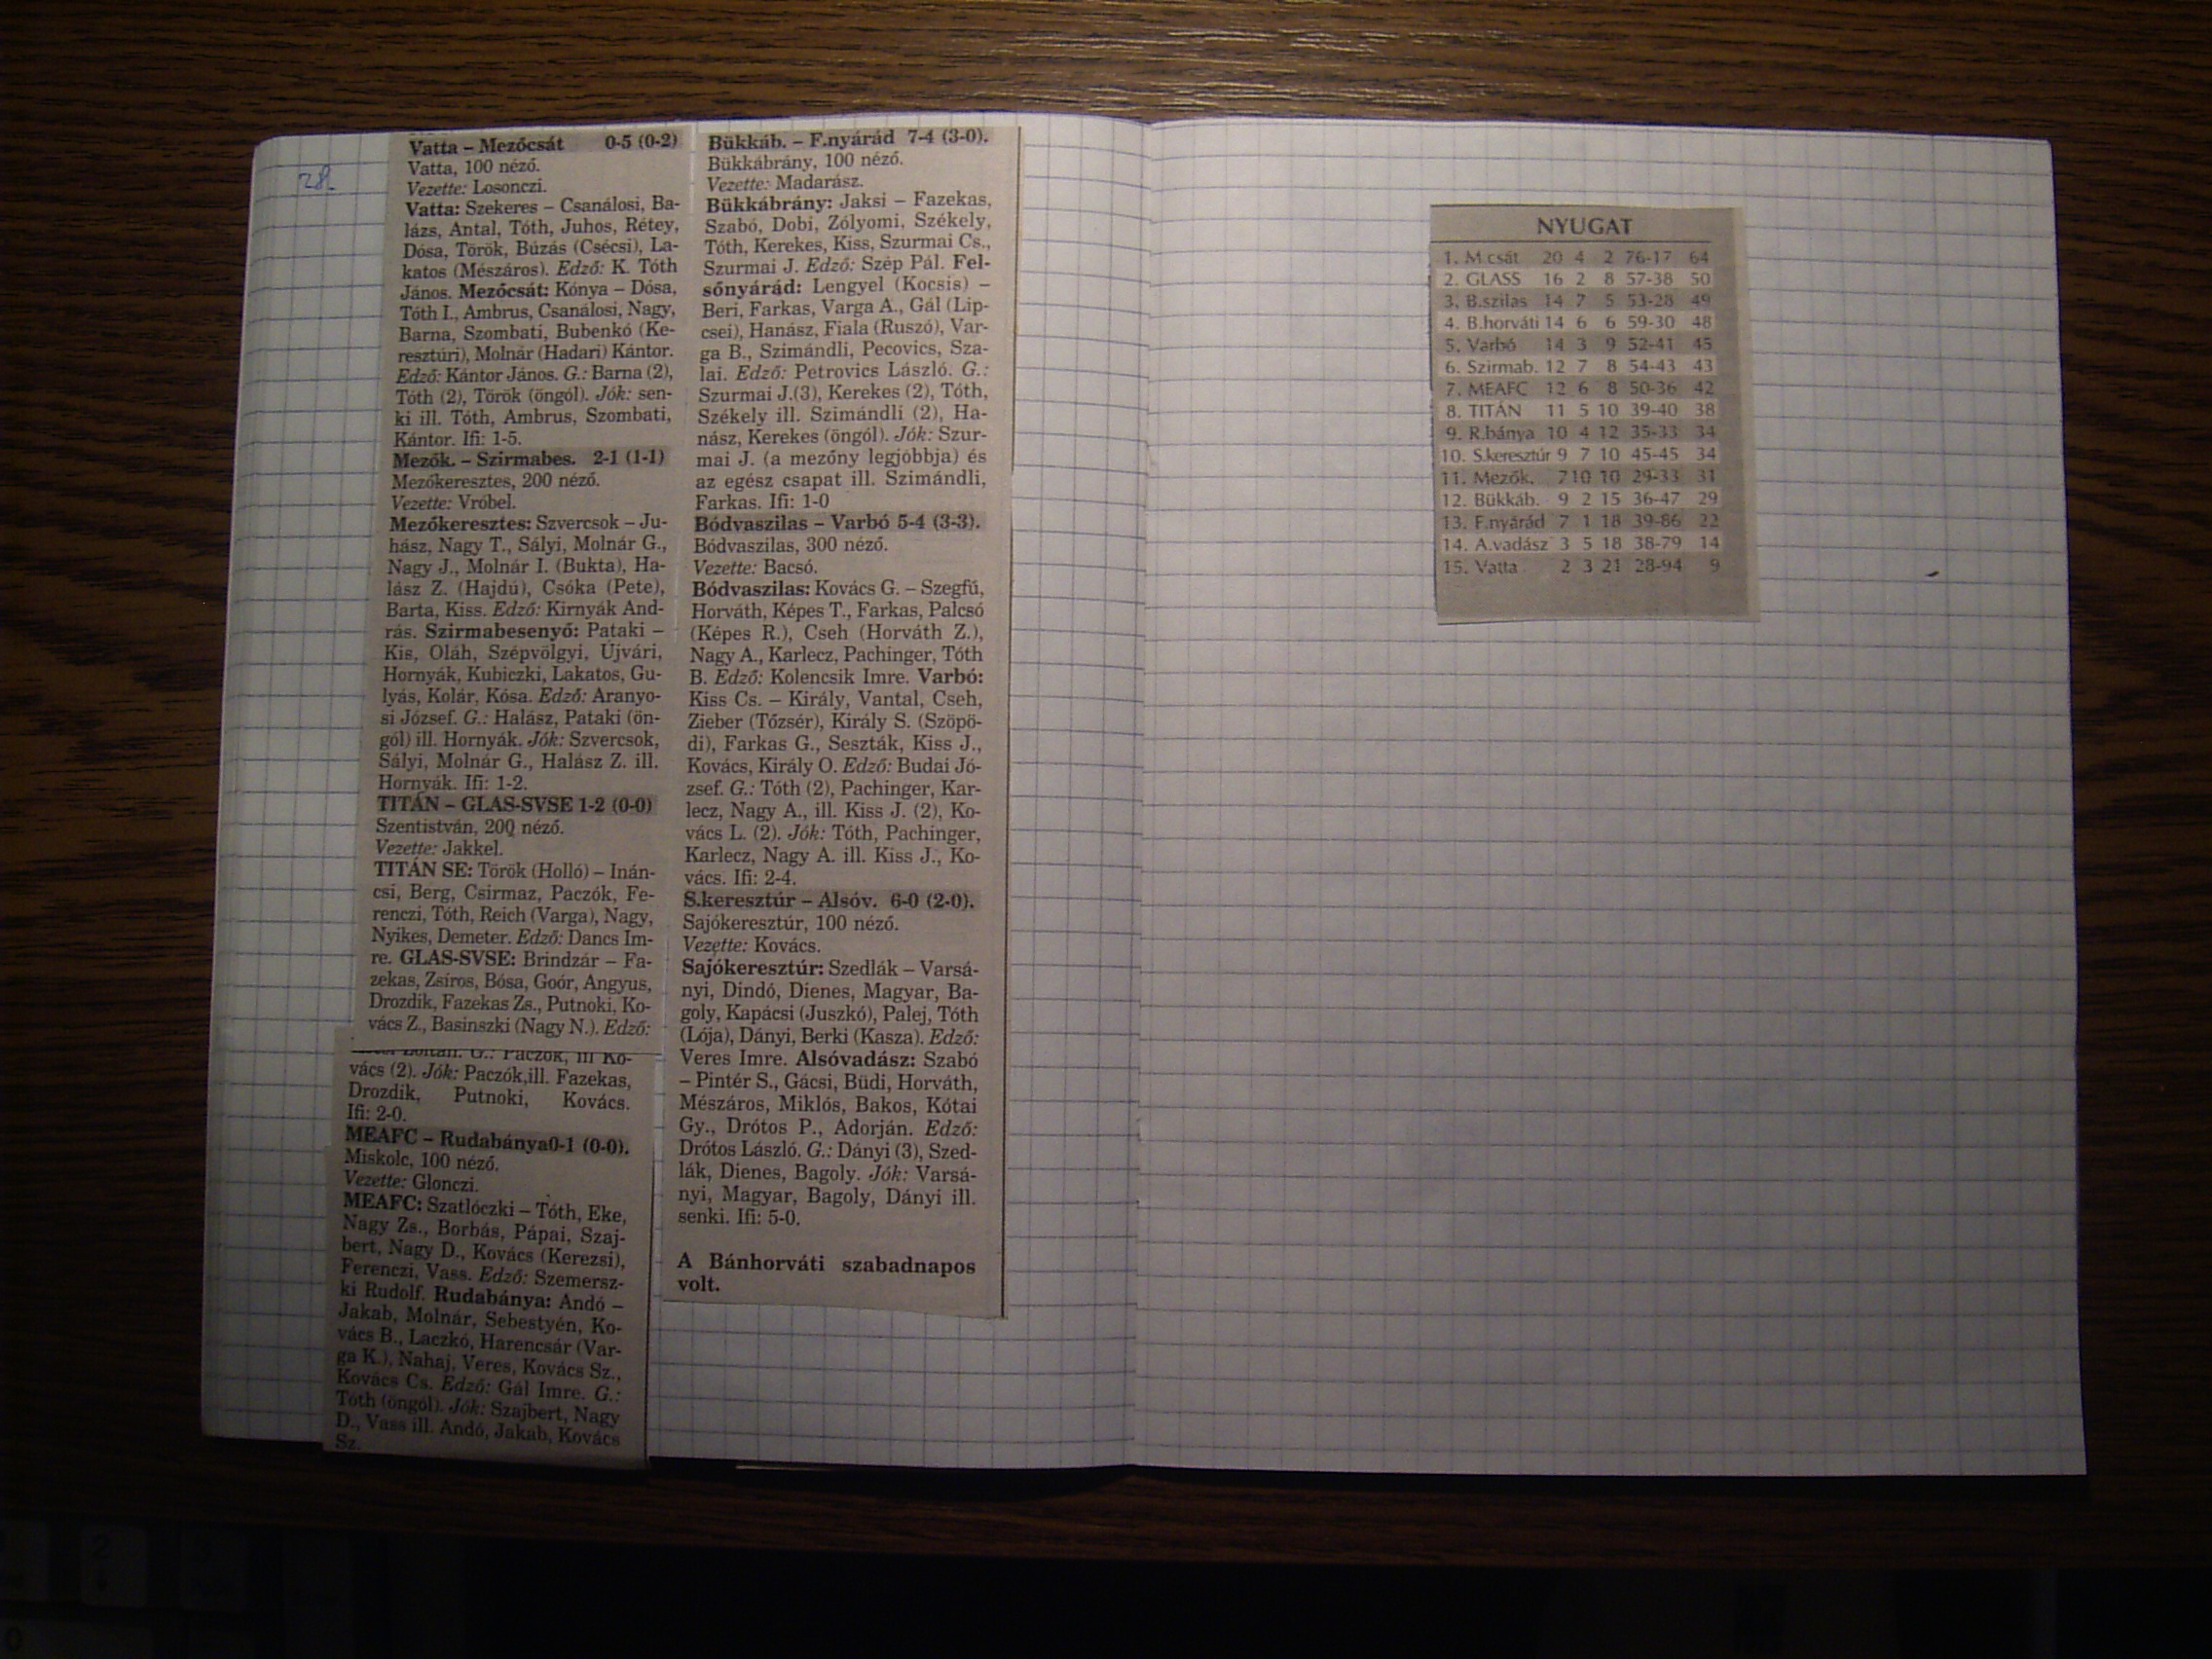 28.
Vatta – Mezőcsát 0-5 (0-2)
Vatta, 100 néző.
Vezette: Losonczi.
Vatta: Szekeres – Csanálosi, Ba-
lázs, Antal, Tóth, Juhos, Rétey,
Dósa, Török, Búzás (Csécsi), La-
katos (Mészáros). Edző: K. Tóth
János. Mezőcsát: Kónya – Dósa,
Tóth I., Ambrus, Csanálosi, Nagy,
Barna, Szombati, Bubenkó (Ke-
resztúri), Molnár (Hadari) Kántor.
Edző: Kántor János. G.: Barna (2),
Tóth (2), Török (öngól). Jók: sen-
ki ill. Tóth, Ambrus, Szombati,
Kántor. Ifi: 1-5.
Mezők. – Szirmabes. 2-1 (1-1)
Mezőkeresztes, 200 néző.
Vezette: Vróbel.
Mezőkeresztes: Szvercsok – Ju-
hász, Nagy T., Sályi, Molnár G.,
Nagy J., Molnár I. (Bukta), Ha-
lász Z. (Hajdú), Csóka (Pete),
Barta, Kiss. Edző: Kirnyák And-
rás. Szirmabesenyő: Pataki –
Kis, Oláh, Szépvölgyi, Újvári,
Hornyák, Kubiczki, Lakatos, Gu-
lyás, Kolár, Kósa. Edző: Aranyo-
si József. G.: Halász, Pataki (ön-
gól) ill. Hornyák. Jók: Szvercsok,
Sályi, Molnár G., Halász Z. ill.
Hornyák. Ifi: 1-2.
TITÁN – GLAS-SVSE 1-2 (0-0)
Szentistván, 200 néző.
Vezette: Jakkel.
TITÁN SE: Török (Holló) – Inán-
csi, Berg, Csirmaz, Paczók, Fe-
renczi, Tóth, Reich (Varga), Nagy,
Nyikes, Demeter. Edző: Dancs Im-
re. GLAS-SVSE: Brindzár – Fa-
zekas, Zsíros, Bósa, Goór, Angyus,
Drozdik, Fazekas Zs., Putnoki, Ko-
vács Z., Basinszki (Nagy N.). Edző:
Zoltán. G.: Paczók, ill Ko-
vács (2). Jók: Paczók,ill. Fazekas,
Drozdik, Putnoki, Kovács.
Ifi: 2-0.
MEAFC – Rudabánya0-1 (0-0).
Miskolc, 100 néző.
Vezette: Glonczi.
MEAFC: Szatlóczki – Tóth, Eke,
Nagy Zs., Borbás, Pápai, Szaj-
bert, Nagy D., Kovács (Kerezsi),
Ferenczi, Vass. Edző: Szemersz-
ki Rudolf. Rudabánya: Andó –
Jakab, Molnár, Sebestyén, Ko-
vács B., Laczkó, Harencsár (Var-
ga K.), Nahaj, Veres, Kovács Sz.,
Kovács Cs. Edző: Gál Imre. G.:
Tóth (öngól). Jók: Szajbert, Nagy
D., Vass ill. Andó, Jakab, Kovács
Sz.
Bükkáb. – F.nyárád 7-4 (3-0).
Bükkábrány, 100 néző.
Vezette: Madarász.
Bükkábrány: Jaksi – Fazekas,
Szabó, Dobi, Zólyomi, Székely,
Tóth, Kerekes, Kiss, Szurmai Cs.,
Szurmai J. Edző: Szép Pál. Fel-
sőnyárád: Lengyel (Kocsis) –
Beri, Farkas, Varga A., Gál (Lip-
csei), Hanász, Fiala (Ruszó), Var-
ga B., Szimándli, Pecovics, Sza-
lai. Edző: Petrovics László. G.:
Szurmai J.(3), Kerekes (2), Tóth,
Székely ill. Szimándli (2), Ha-
nász, Kerekes (öngól). Jók: Szur-
mai J. (a mezőny legjobbja) és
az egész csapat ill. Szimándli,
Farkas. Ifi: 1-0
Bódvaszilas – Varbó 5-4 (3-3).
Bódvaszilas, 300 néző.
Vezette: Bacsó.
Bódvaszilas: Kovács G. – Szegfű,
Horváth, Képes T., Farkas, Palcsó
(Képes R.), Cseh (Horváth Z.),
Nagy A., Karlecz, Pachinger, Tóth
B. Edző: Kolencsik Imre. Varbó:
Kiss Cs. – Király, Vantal, Cseh,
Zieber (Tőzsér), Király S. (Szöpö-
di), Farkas G., Seszták, Kiss J.,
Kovács, Király O. Edző: Budai Jó-
zsef. G.: Tóth (2), Pachinger, Kar-
lecz, Nagy A., ill. Kiss J. (2), Ko-
vács L. (2). Jók: Tóth, Pachinger,
Karlecz, Nagy A. ill. Kiss J., Ko-
vács. Ifi: 2-4.
S.keresztúr – Alsóv. 6-0 (2-0).
Sajókeresztúr, 100 néző.
Vezette: Kovács.
Sajókeresztúr: Szedlák – Varsá-
nyi, Dindó, Dienes, Magyar, Ba-
goly, Kapácsi (Juszkó), Palej, Tóth
(Lója), Dányi, Berki (Kasza). Edző:
Veres Imre. Alsóvadász: Szabó
– Pintér S., Gácsi, Büdi, Horváth,
Mészáros, Miklós, Bakos, Kótai
Gy., Drótos P., Adorján. Edző:
Drótos László. G.: Dányi (3), Szed-
lák, Dienes, Bagoly. Jók: Varsá-
nyi, Magyar, Bagoly, Dányi ill.
senki. Ifi: 5-0.
A Bánhorváti szabadnapos
volt.
NYUGAT
1. M.csát 20 4 2 76-17 64
2. GLASS 16 2 8 57-38 50
3. B.szilas 14 7 5 53-28 49
4. B.horváti 14 6 6 59-30 48
5. Varbó 14 3 9 52-41 45
6. Szirmab. 12 7 8 54-43 43
7. MEAFC 12 6 8 50-36 42
8. TITÁN 11 5 10 39-40 38
9. R.bánya 10 4 12 35-33 34
10. S.keresztúr 9 7 10 45-45 34
11. Mezők. 7 10 10 29-33 31
12. Bükkáb. 9 2 15 36-47 29
13. F.nyárád 7 1 18 39-86 22
14. A.vadász 3 5 18 38-79 14
15. Vatta 2 3 21 28-94 9